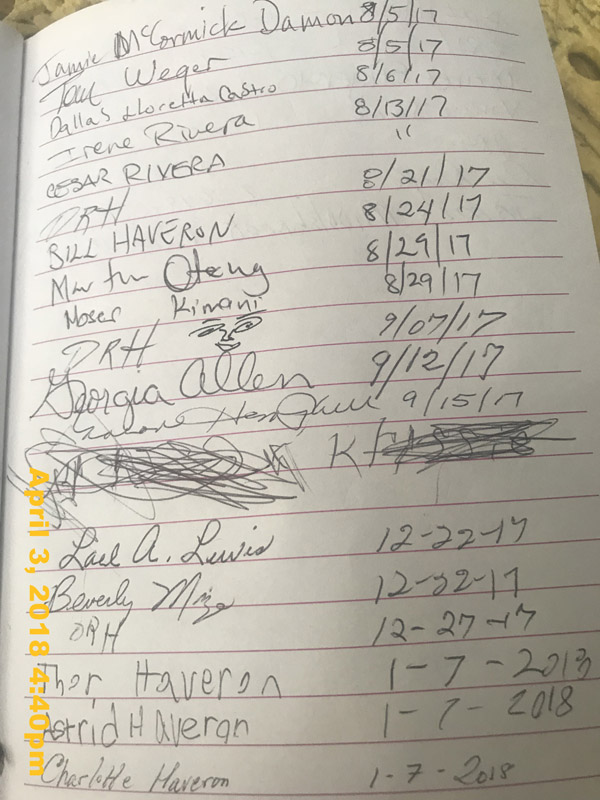 Jamie McCormick Damon 8/5/17
Weger 8/5/17
Dallas & Loretta Castro 8/6/17
Irene Rivera 8/13/17
CESAR RIVERA "
DRH 8/21/17
BILL HAVERON 8/24/17
Oteng 8/29/17
Moses Kimani 8/29/17
DRH 9/07/17
Georgia Allen 9/12/17
9/15/17
K
Lael A. Lewis 12-22-17
Beverly Mize 12-22-17
DRH 12-27-17
Thor Haveron 1-7-2018
Astrid Haveron 1-7-2018
Charlotte Haveron 1-7-2018
April 3, 2018 4:40pm